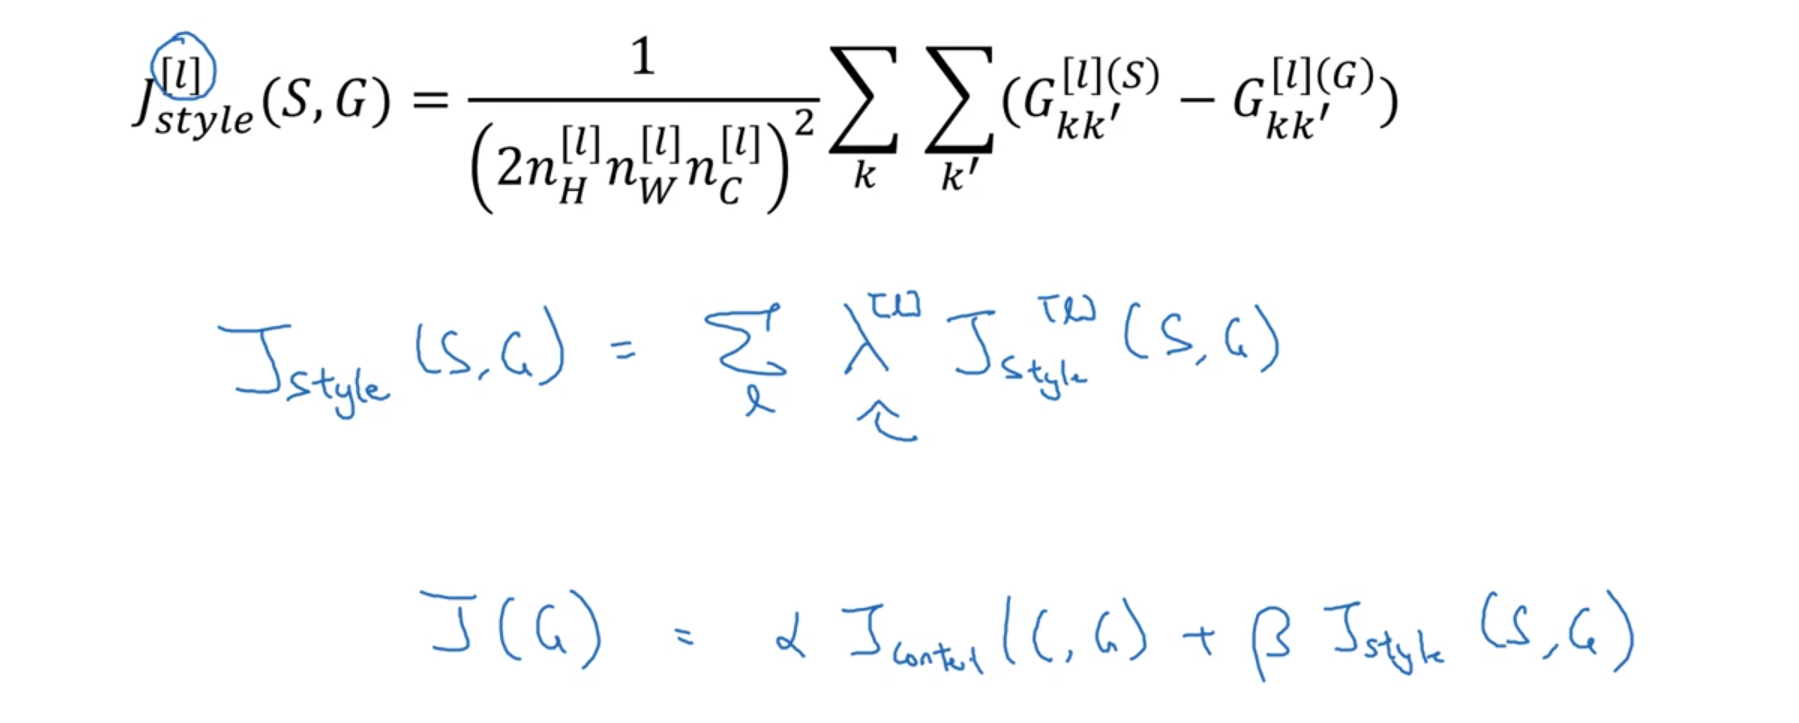 J_{style}^{[l]}(S, G) = \frac{1}{\left(2n_H^{[l]} n_W^{[l]} n_C^{[l]}\right)^2} \sum_k \sum_{k'} (G_{kk'}^{[l](S)} − G_{kk'}^{[l](G)})
J_{style}(S, G) = \sum_l λ^{[l]} J_{style}^{[l]}(S, G)
J(G) = α J_{content}(C, G) + β J_{style}(S, G)